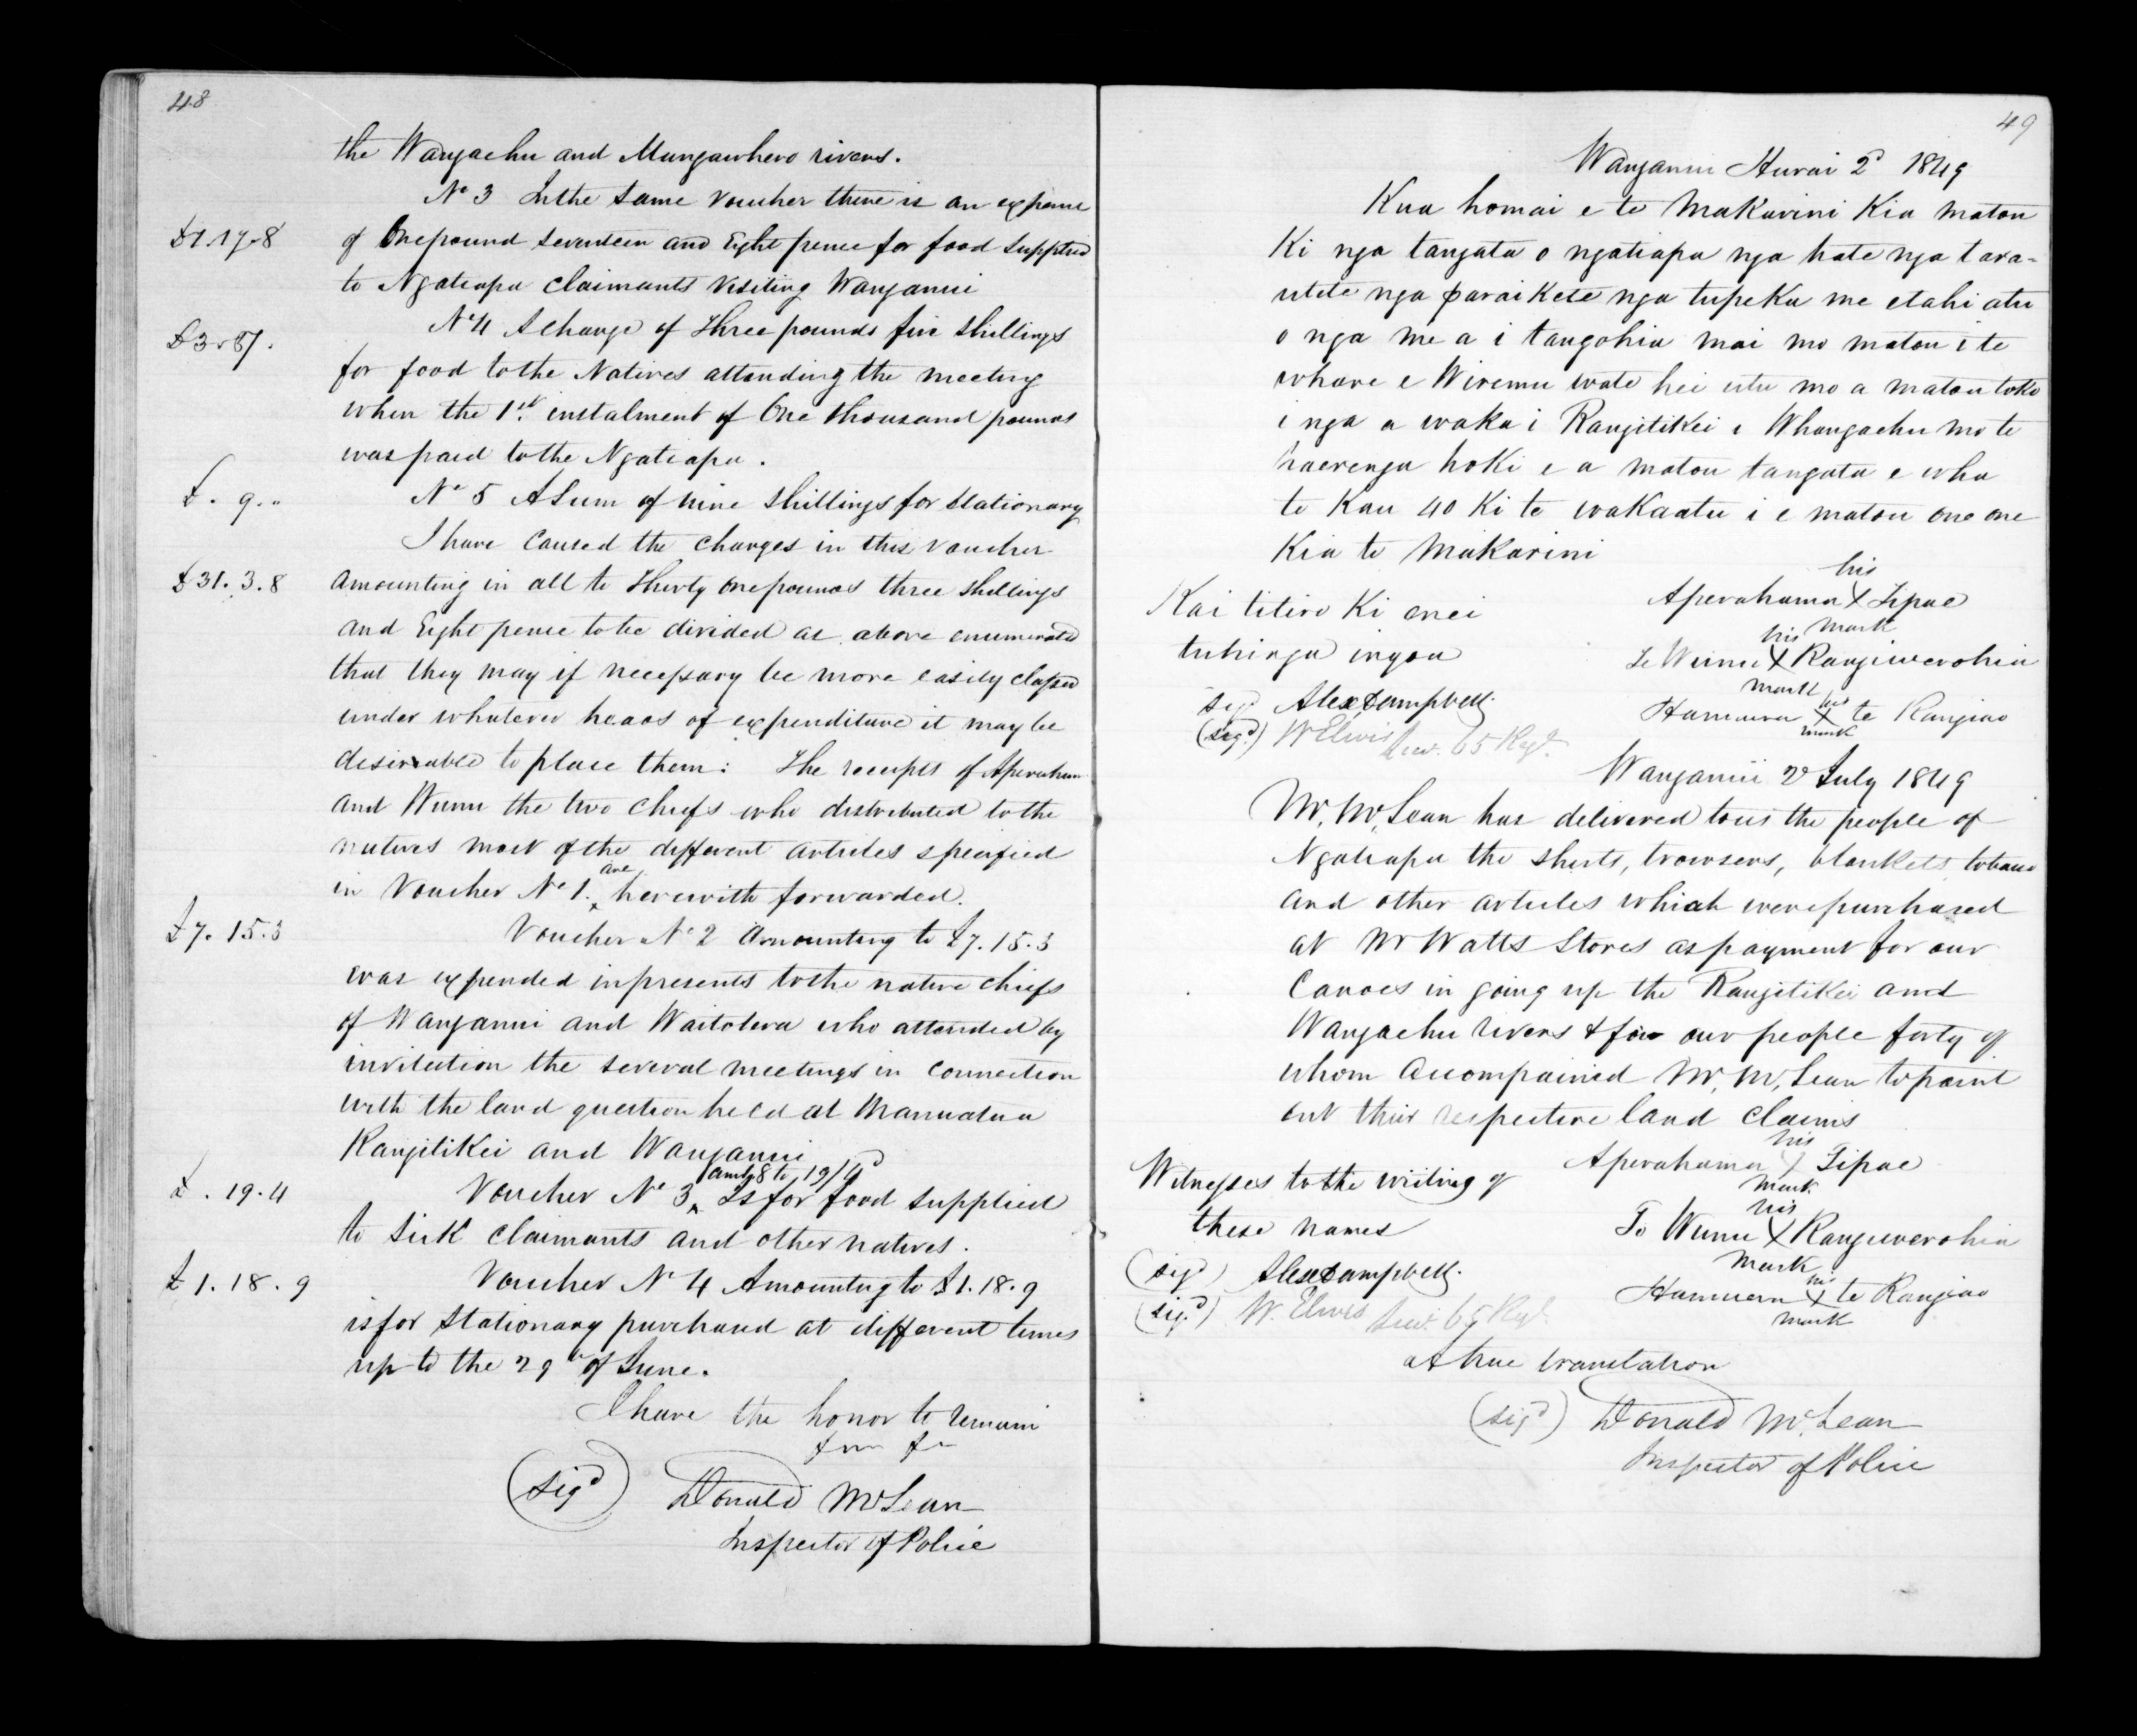 48
the Wangaehu and Mungawhero rivers.
No 3 In the same voucher there is an expense
£1.17.8 of One pound seventeen and Eight pence for food supplied
to Ngatiapa claimants visiting Wanganui
£3.5/. No 4 A charge of Three pounds five shillings
for food to the Natives attending the meeting
when the 1st instalment of One thousand pounds
was paid to the Ngatiapa.
£. 9.. No 5 A Sum of nine shillings for stationary
I have caused the charges in this voucher
£31.3.8 amounting in all to Thirty one pounds three shillings
and Eight pence to be divided as above enumerated
that they may if necessary be more easily classed
under whatever heads of expenditure it may be
desirable to place them: The receipts of Aperahama
and Wunu the two chiefs who distributed to the
natives most of the different articles specified
in Voucher No 1. are herewith forwarded.
£7.15.3 Voucher No 2 amounting to £7.15.3
was expended in presents to the native chiefs
of Wanganui and Waitotara who attended by
invitation the several meetings in connection
with the land question held at Manuatua
Rangitikei and Wanganui
£.19.4 Voucher No 3 amtg to 19/4d Is for food supplied
to sick claimants and other natives.
£1.18.9 Voucher No 4 Amounting to £1.18.9
is for stationary purchased at different times
up to the 29th of June.
I have the honor to remain
(sigd) Donald McLean
Inspector of Police
49
Wanganui Hurai 2d 1849
Kua homai e te Makarini Kia matou
Ki nga tangata o ngatiapa nga hate nga tara-
utete nga paraikete nga tupeka me etahi atu
o nga me a i tangohia mai mo matou i te
whare e Wiremu wate hei utu mo a matou toko
i nga a waka i Rangitikei i Whangaehu mo te
haerenga hoki e a matou tangata e wha
te Kau 40 Ki te wakaatu i e matou one one
Kia te Makarini
Kai titiro Ki enei
tuhinga ingoa
sigd Alex Campbell.
(sigd) W Elwis Lieu. 65 Regt.
Aperahama his X mark Tipae
Te Wunu his X mark Rangiwerohia
Hamuera his X mark te Rangiao
Wanganui 2d July 1849
Mr. McLean has delivered to us the people of
Ngatiapa the shirts, trowsers, blankets, tobacco
and other articles which were purchased
at Mr Watts Stores as payment for our
Canoes in going up the Rangitikei and
Wangaehu rivers & for our people forty of
whom accompained Mr. McLean to point
out their respective land claims
Witnesses to the writing of
these names
(sigd) Alex Campbell.
(sigd) W. Elwis Lieu. 65 Regt.
Aperahama his X mark Tipae
Te Wunu his X mark Rangiwerohia
Hamuera his X mark te Rangiao
A true translation
(sigd) Donald McLean
Inspector of Police